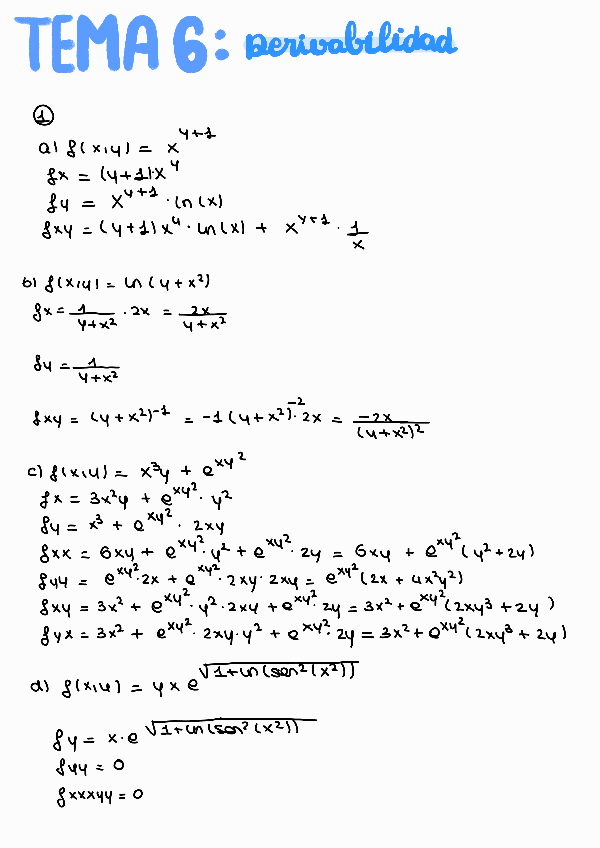 TEMA 6: Derivabilidad
1
a) f(x,y) = x^{y+1}
fx = (y+1)·x^y
fy = x^{y+1} · ln(x)
fxy = (y+1)x^y · ln(x) + x^{y+1} · 1/x
b) f(x,y) = ln(y+x²)
fx = 1/(y+x²) · 2x = 2x/(y+x²)
fy = 1/(y+x²)
fxy = (y+x²)^{-1} = -1(y+x²)^{-2} · 2x = -2x/(y+x²)²
c) f(x,y) = x³y + e^{xy²}
fx = 3x²y + e^{xy²} · y²
fy = x³ + e^{xy²} · 2xy
fxx = 6xy + e^{xy²} · y² + e^{xy²} · 2y = 6xy + e^{xy²}(y²+2y)
fyy = e^{xy²} · 2x + e^{xy²} · 2xy · 2xy = e^{xy²}(2x + 4x²y²)
fxy = 3x² + e^{xy²} · y² · 2xy + e^{xy²} · 2y = 3x² + e^{xy²}(2xy³ + 2y)
fyx = 3x² + e^{xy²} · 2xy · y² + e^{xy²} · 2y = 3x² + e^{xy²}(2xy³ + 2y)
d) f(x,y) = y x e^{√(1+ln(sen²(x²)))}
fy = x · e^{√(1+ln(sen²(x²)))}
fyy = 0
fxxxyy = 0